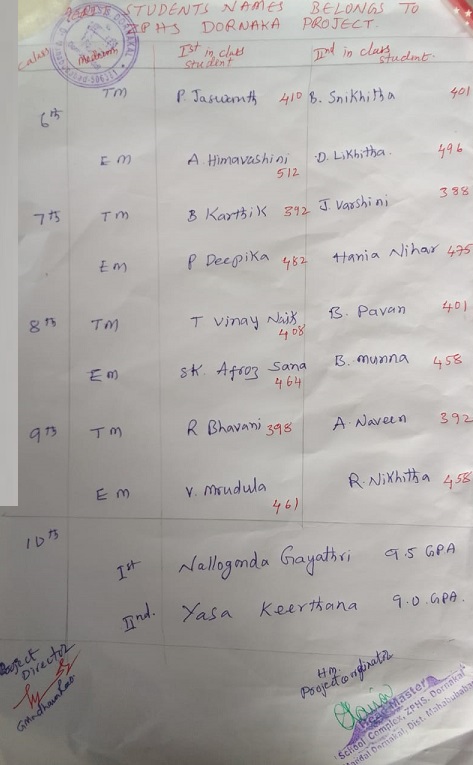 STUDENTS NAMES BELONGS TO
ZPHS DORNAKA PROJECT.
Class Medium Ist in class student IInd in class student
6th TM P. Jaswanth 410 B. Snikhitha 401
EM A. Himavashini 512 D. Likhitha. 496
7th TM B Karthik 392 J. Varshini 388
EM P Deepika 482 Hania Nihar 475
8th TM T Vinay Naik 408 B. Pavan 401
EM SK. Afroz Sana 464 B. Munna 458
9th TM R Bhavani 398 A. Naveen 392
EM V. Mrudula 461 R. Nikhitha 458
10th
Ist Nallogonda Gayathri 9.5 GPA
IInd. Yasa Keerthana 9.0 GPA.
Project Director
HM.
Project coordinator
Head Master
School Complex, ZPHS, Dornakal
Mandal Dornakal, Dist. Mahabubabad